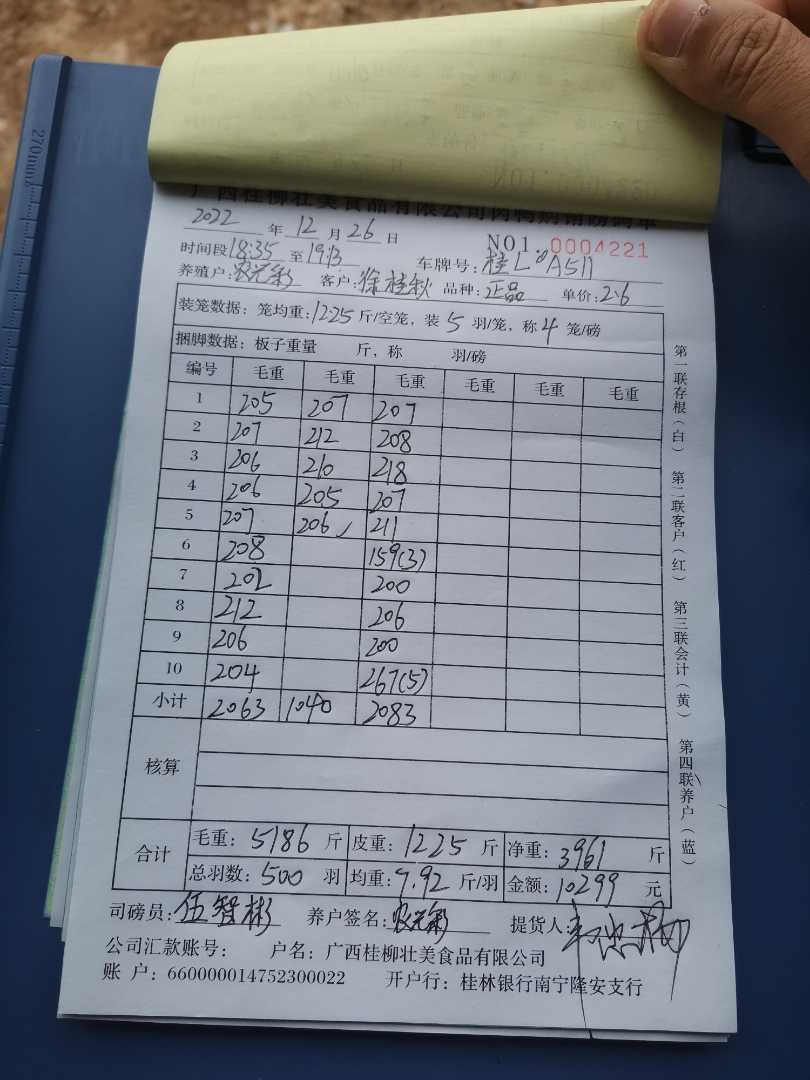 广西桂柳壮美食品有限公司肉鸭购销磅调单
2022 年 12 月 26 日 NO1. 0004221
时间段 18:35 至 19:13 车牌号: 桂L A511
养殖户: 客户: 徐桂秋 品种: 正品 单价: 2.6
装笼数据: 笼均重: 12.25 斤/空笼, 装 5 羽/笼, 称 4 笼/磅
捆脚数据: 板子重量 斤, 称 羽/磅
编号 毛重 毛重 毛重 毛重 毛重 毛重
1 205 207 207
2 207 212 208
3 206 210 218
4 206 205 207
5 207 206 211
6 208 159(3)
7 202 200
8 212 206
9 206 200
10 204 267(5)
小计 2063 1040 2083
核算
合计 毛重: 5186 斤 皮重: 1225 斤 净重: 3961 斤
总羽数: 500 羽 均重: 7.92 斤/羽 金额: 10299 元
司磅员: 伍智彬 养户签名: 提货人:
公司汇款账号: 户名: 广西桂柳壮美食品有限公司
账 户: 660000014752300022 开户行: 桂林银行南宁隆安支行
第一联存根(白) 第二联客户(红) 第三联会计(黄) 第四联养户(蓝)
270mm